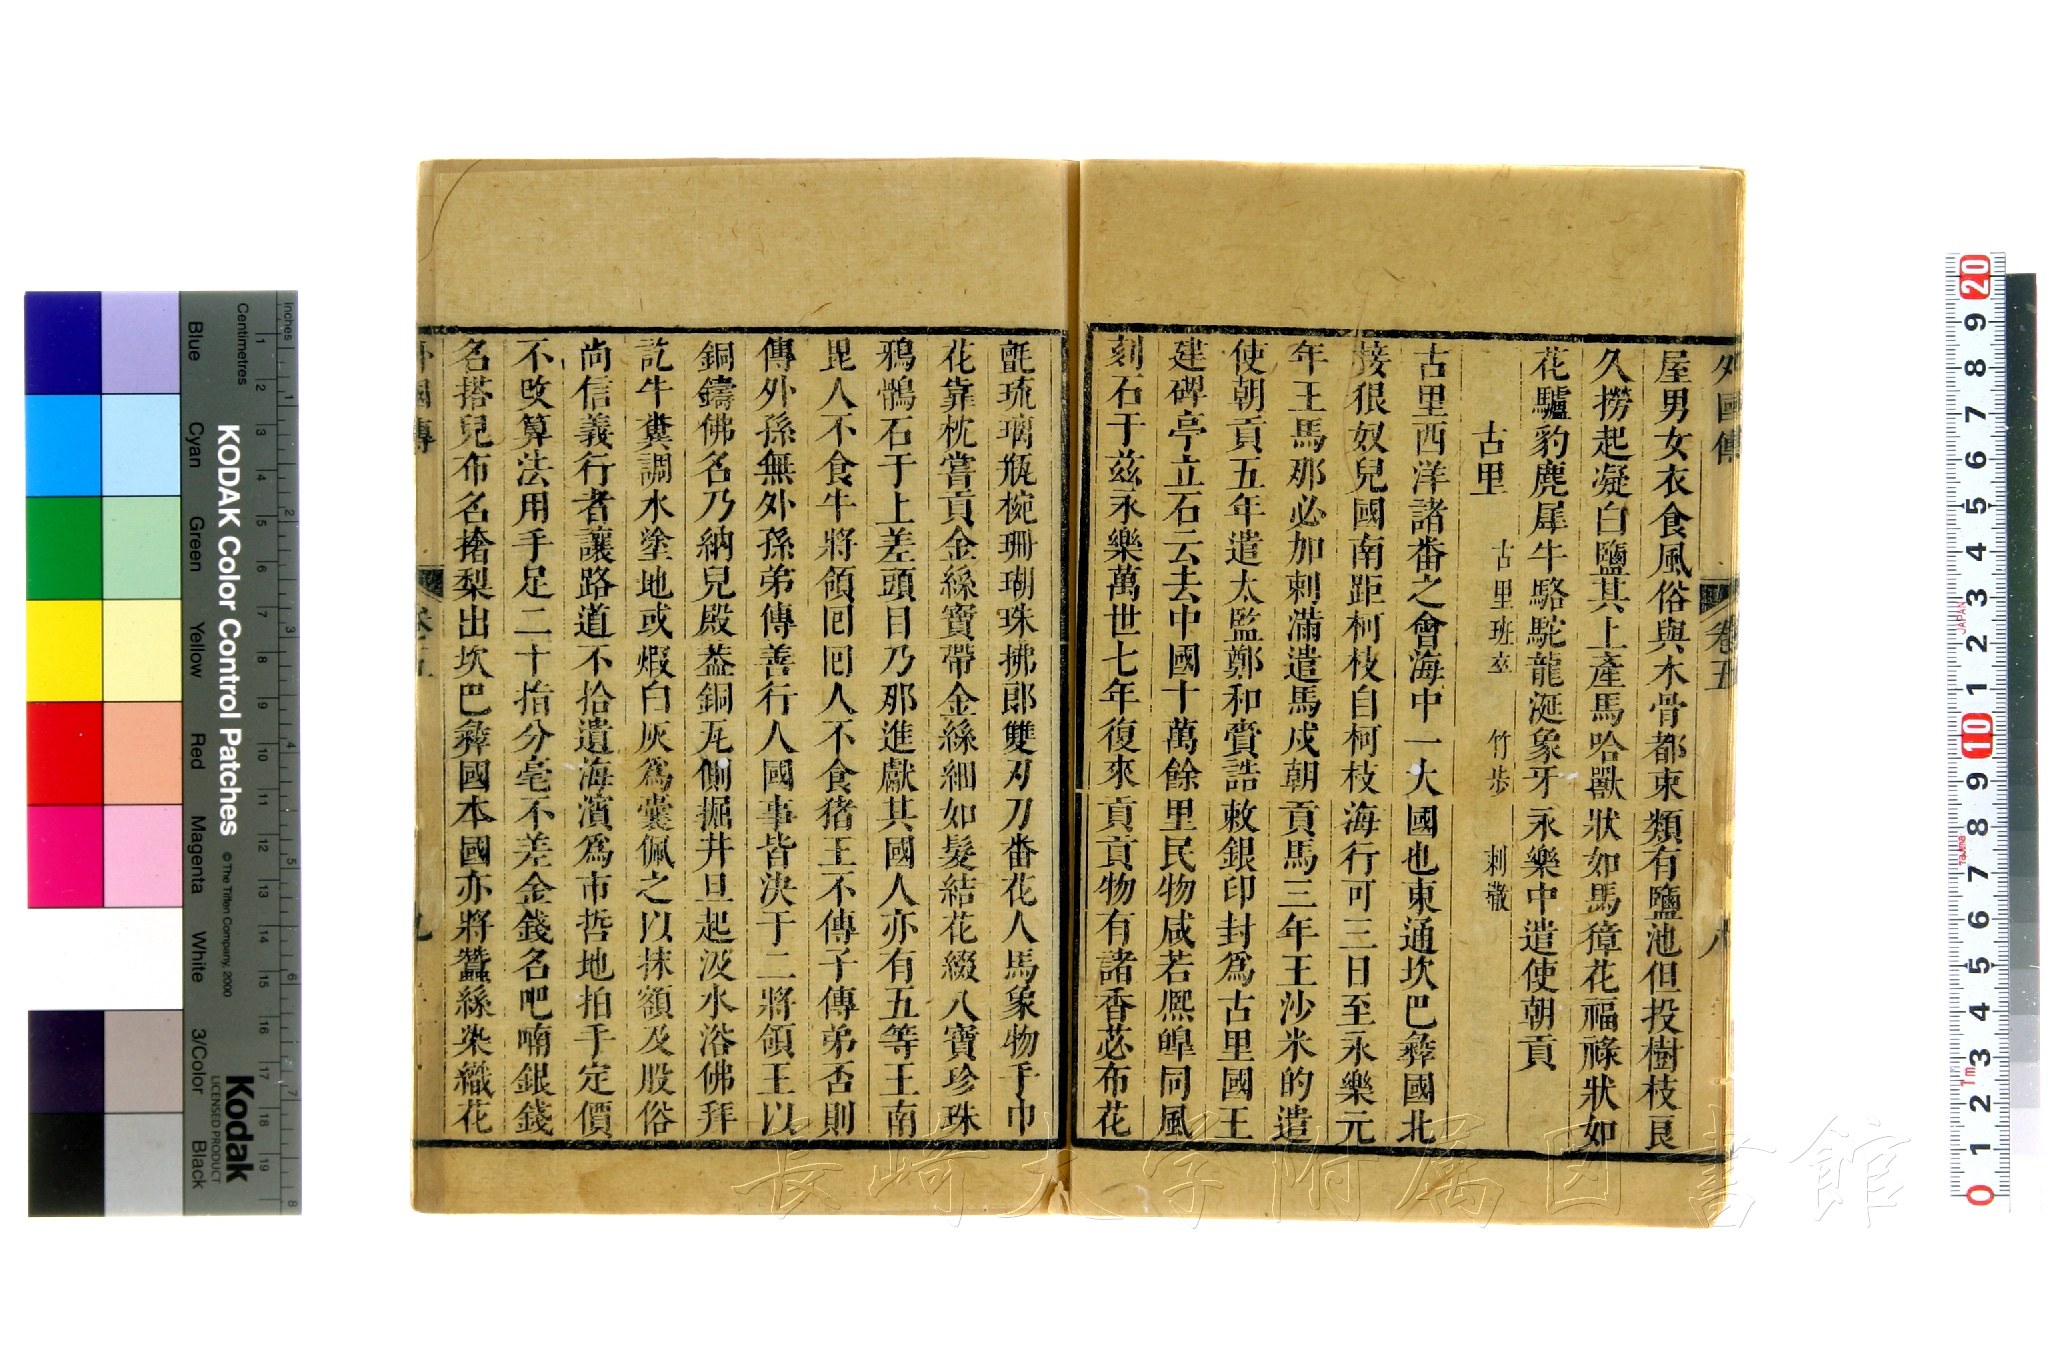 外國傳 卷五 八
屋男女衣食風俗與木骨都束類有鹽池但投樹枝良
久撈起凝白鹽其上產馬哈獸狀如馬獐花福祿狀如
花驢豹麂犀牛駱駝龍涎象牙永樂中遣使朝貢
古里 古里班卒 竹步 剌撒
古里西洋諸番之會海中一大國也東通坎巴彝國北
接狠奴兒國南距柯枝自柯枝海行可三日至永樂元
年王馬那必加剌滿遣馬戍朝貢馬三年王沙米的遣
使朝貢五年遣太監鄭和賫誥敕銀印封爲古里國王
建碑亭立石云去中國十萬餘里民物咸若熈皥同風
刻石于茲永樂萬世七年復來貢貢物有諸香苾布花
氈琉璃瓶椀珊瑚珠拂郎雙刃刀番花人馬象物手巾
花靠枕嘗貢金絲寶帶金絲細如髮結花綴八寶珍珠
鴉鶻石于上差頭目乃那進獻其國人亦有五等王南
毘人不食牛將領囘囘人不食猪王不傳子傳弟否則
傳外孫無外孫弟傳善行人國事皆決于二將領王以
銅鑄佛名乃納兒殿葢銅瓦側掘井旦起汲水浴佛拜
訖牛糞調水塗地或煆白灰爲囊佩之以抹額及股俗
尚信義行者讓路道不拾遺海濱爲市哲地拍手定價
不改算法用手足二十指分毫不差金錢名吧喃銀錢
名搭兒布名撦梨出坎巴彝國本國亦將蠶絲染織花
外國傳 卷五 九
長崎大学附属図書館
KODAK Color Control Patches
© The Tiffen Company, 2000
Kodak
LICENSED PRODUCT
Inches
Centimetres
Blue Cyan Green Yellow Red Magenta White 3/Color Black
JAPAN